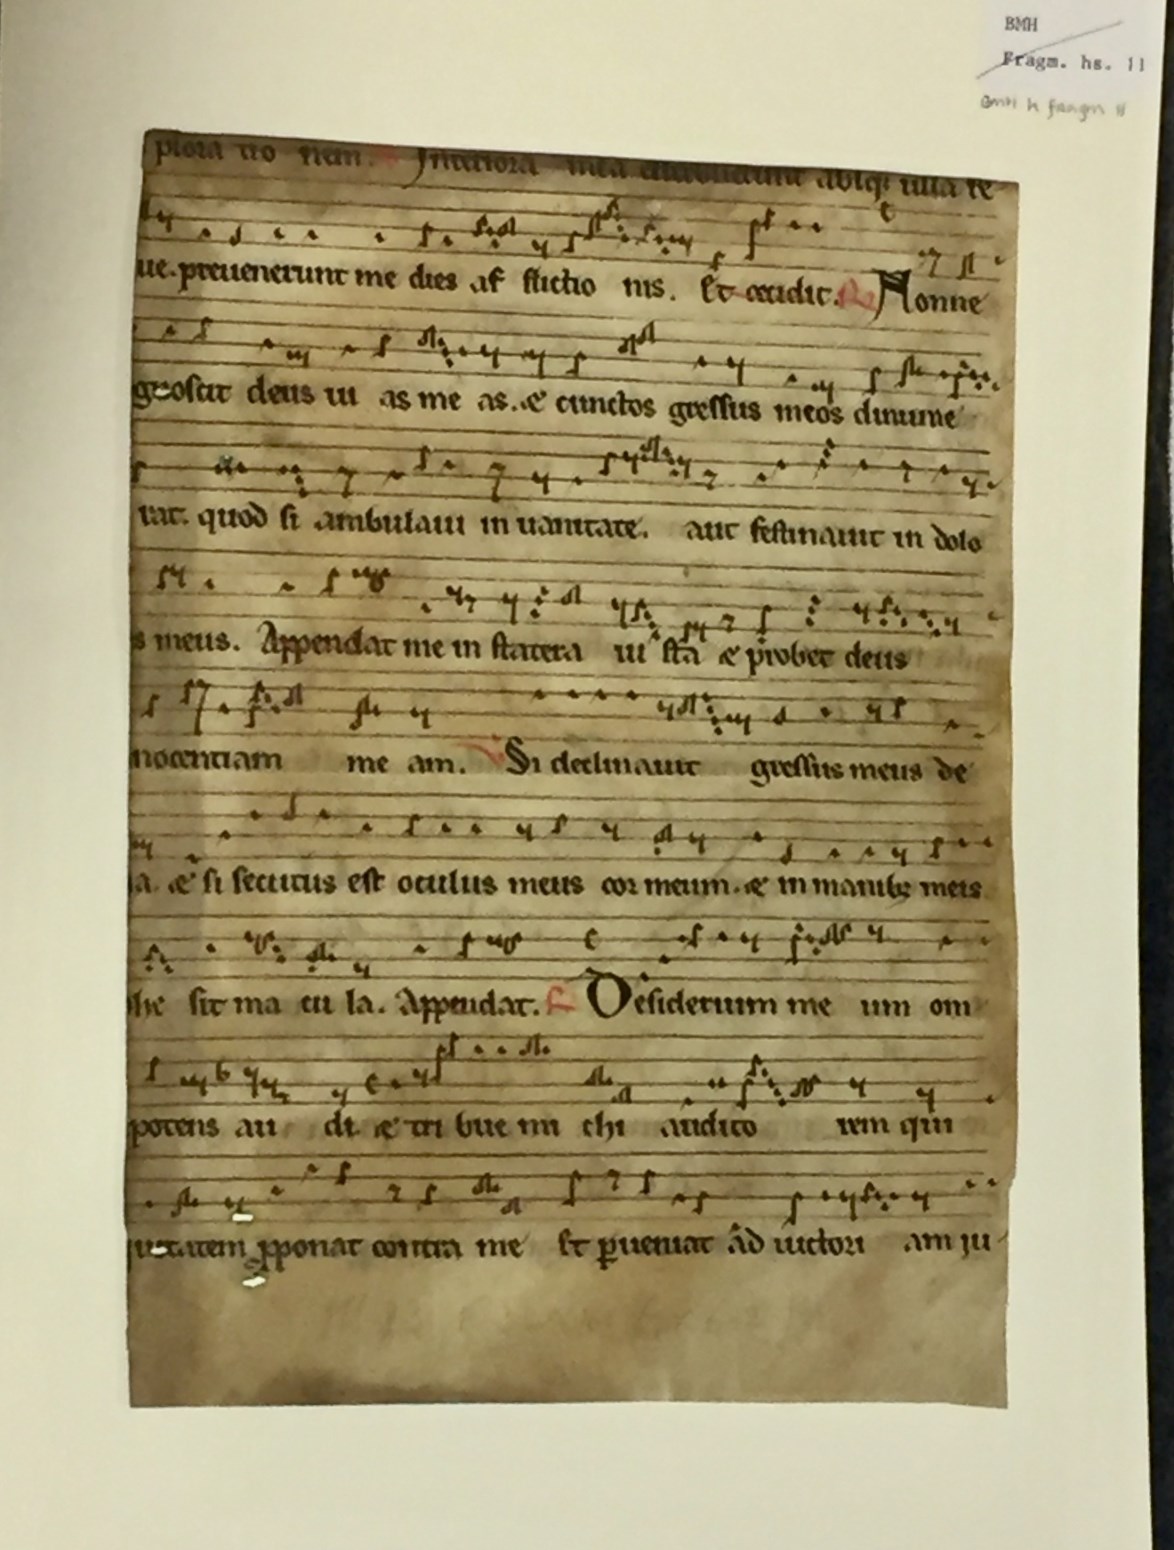 BMH
Fragm. hs. 11
BMH h fragm 11
plora tio nem. Interiora mea absq; ulla re
ue. preuenerunt me dies af flictio nis. Et cecidit. R Nonne
gnoscit deus ui as me as. & cunctos gressus meos dinume
rat. quod si ambulaui in uanitate. aut festinauit in dolo
s meus. Appendat me in statera iu sta & probet deus
nocentiam me am. V Si declinauit gressus meus de
a. & si secutus est oculus meus cor meum. & in manib; meis
he sit ma cu la. Appendat. R Desiderium me um om
potens au di & tri bue mi chi audito rem qui
iustitiam pponat contra me Et pueniat ad uictori am iu